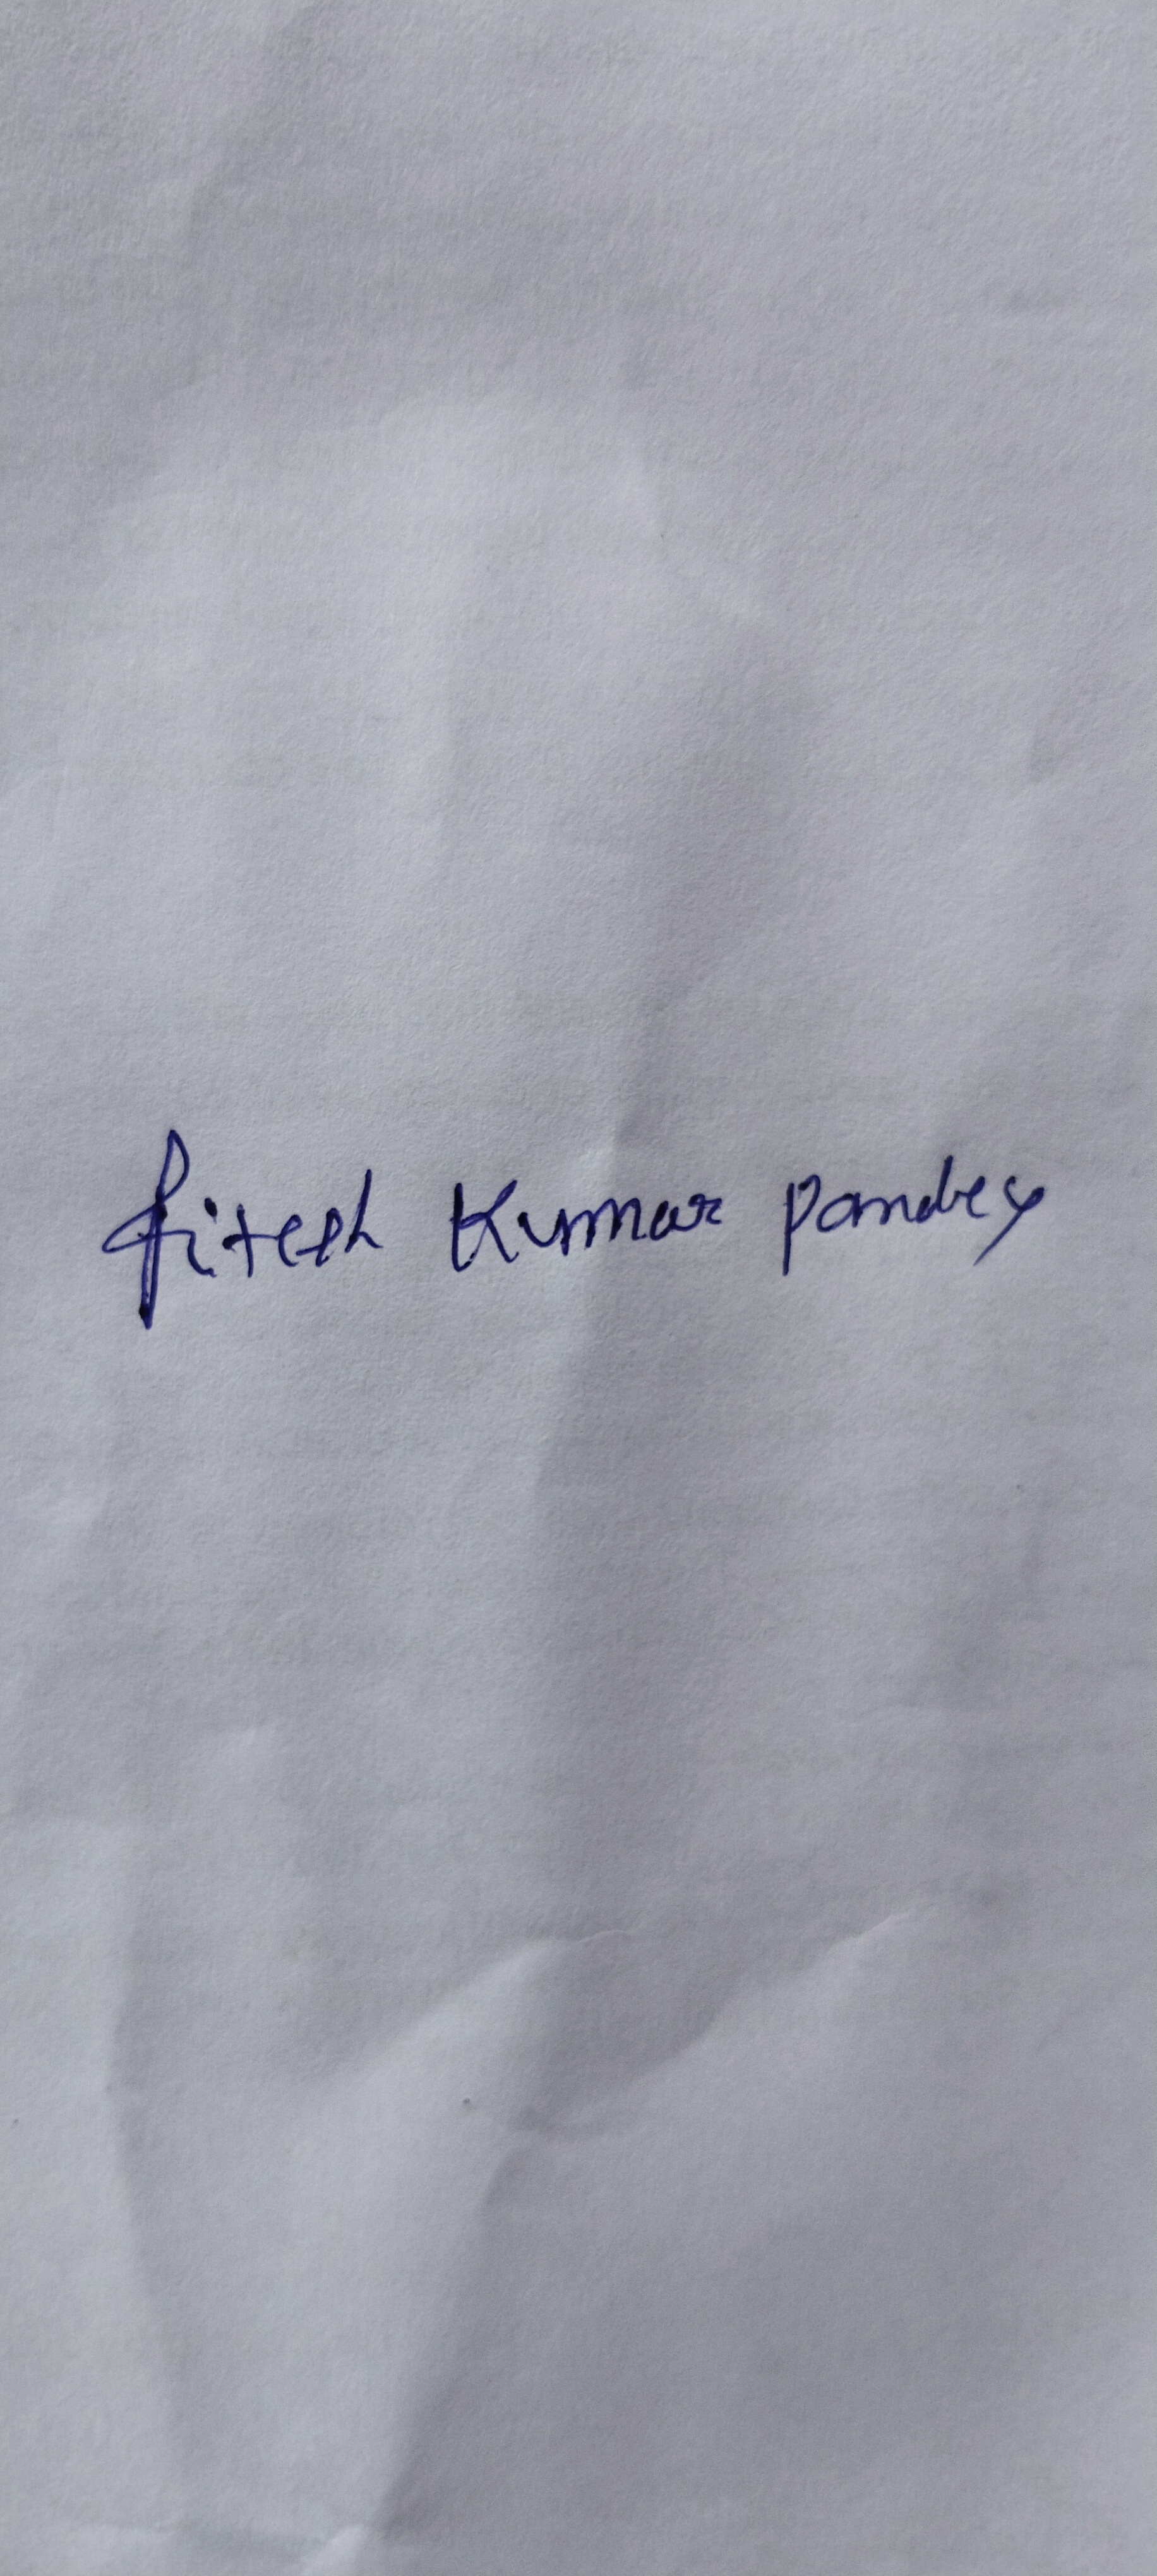 Ritesh Kumar Pandey